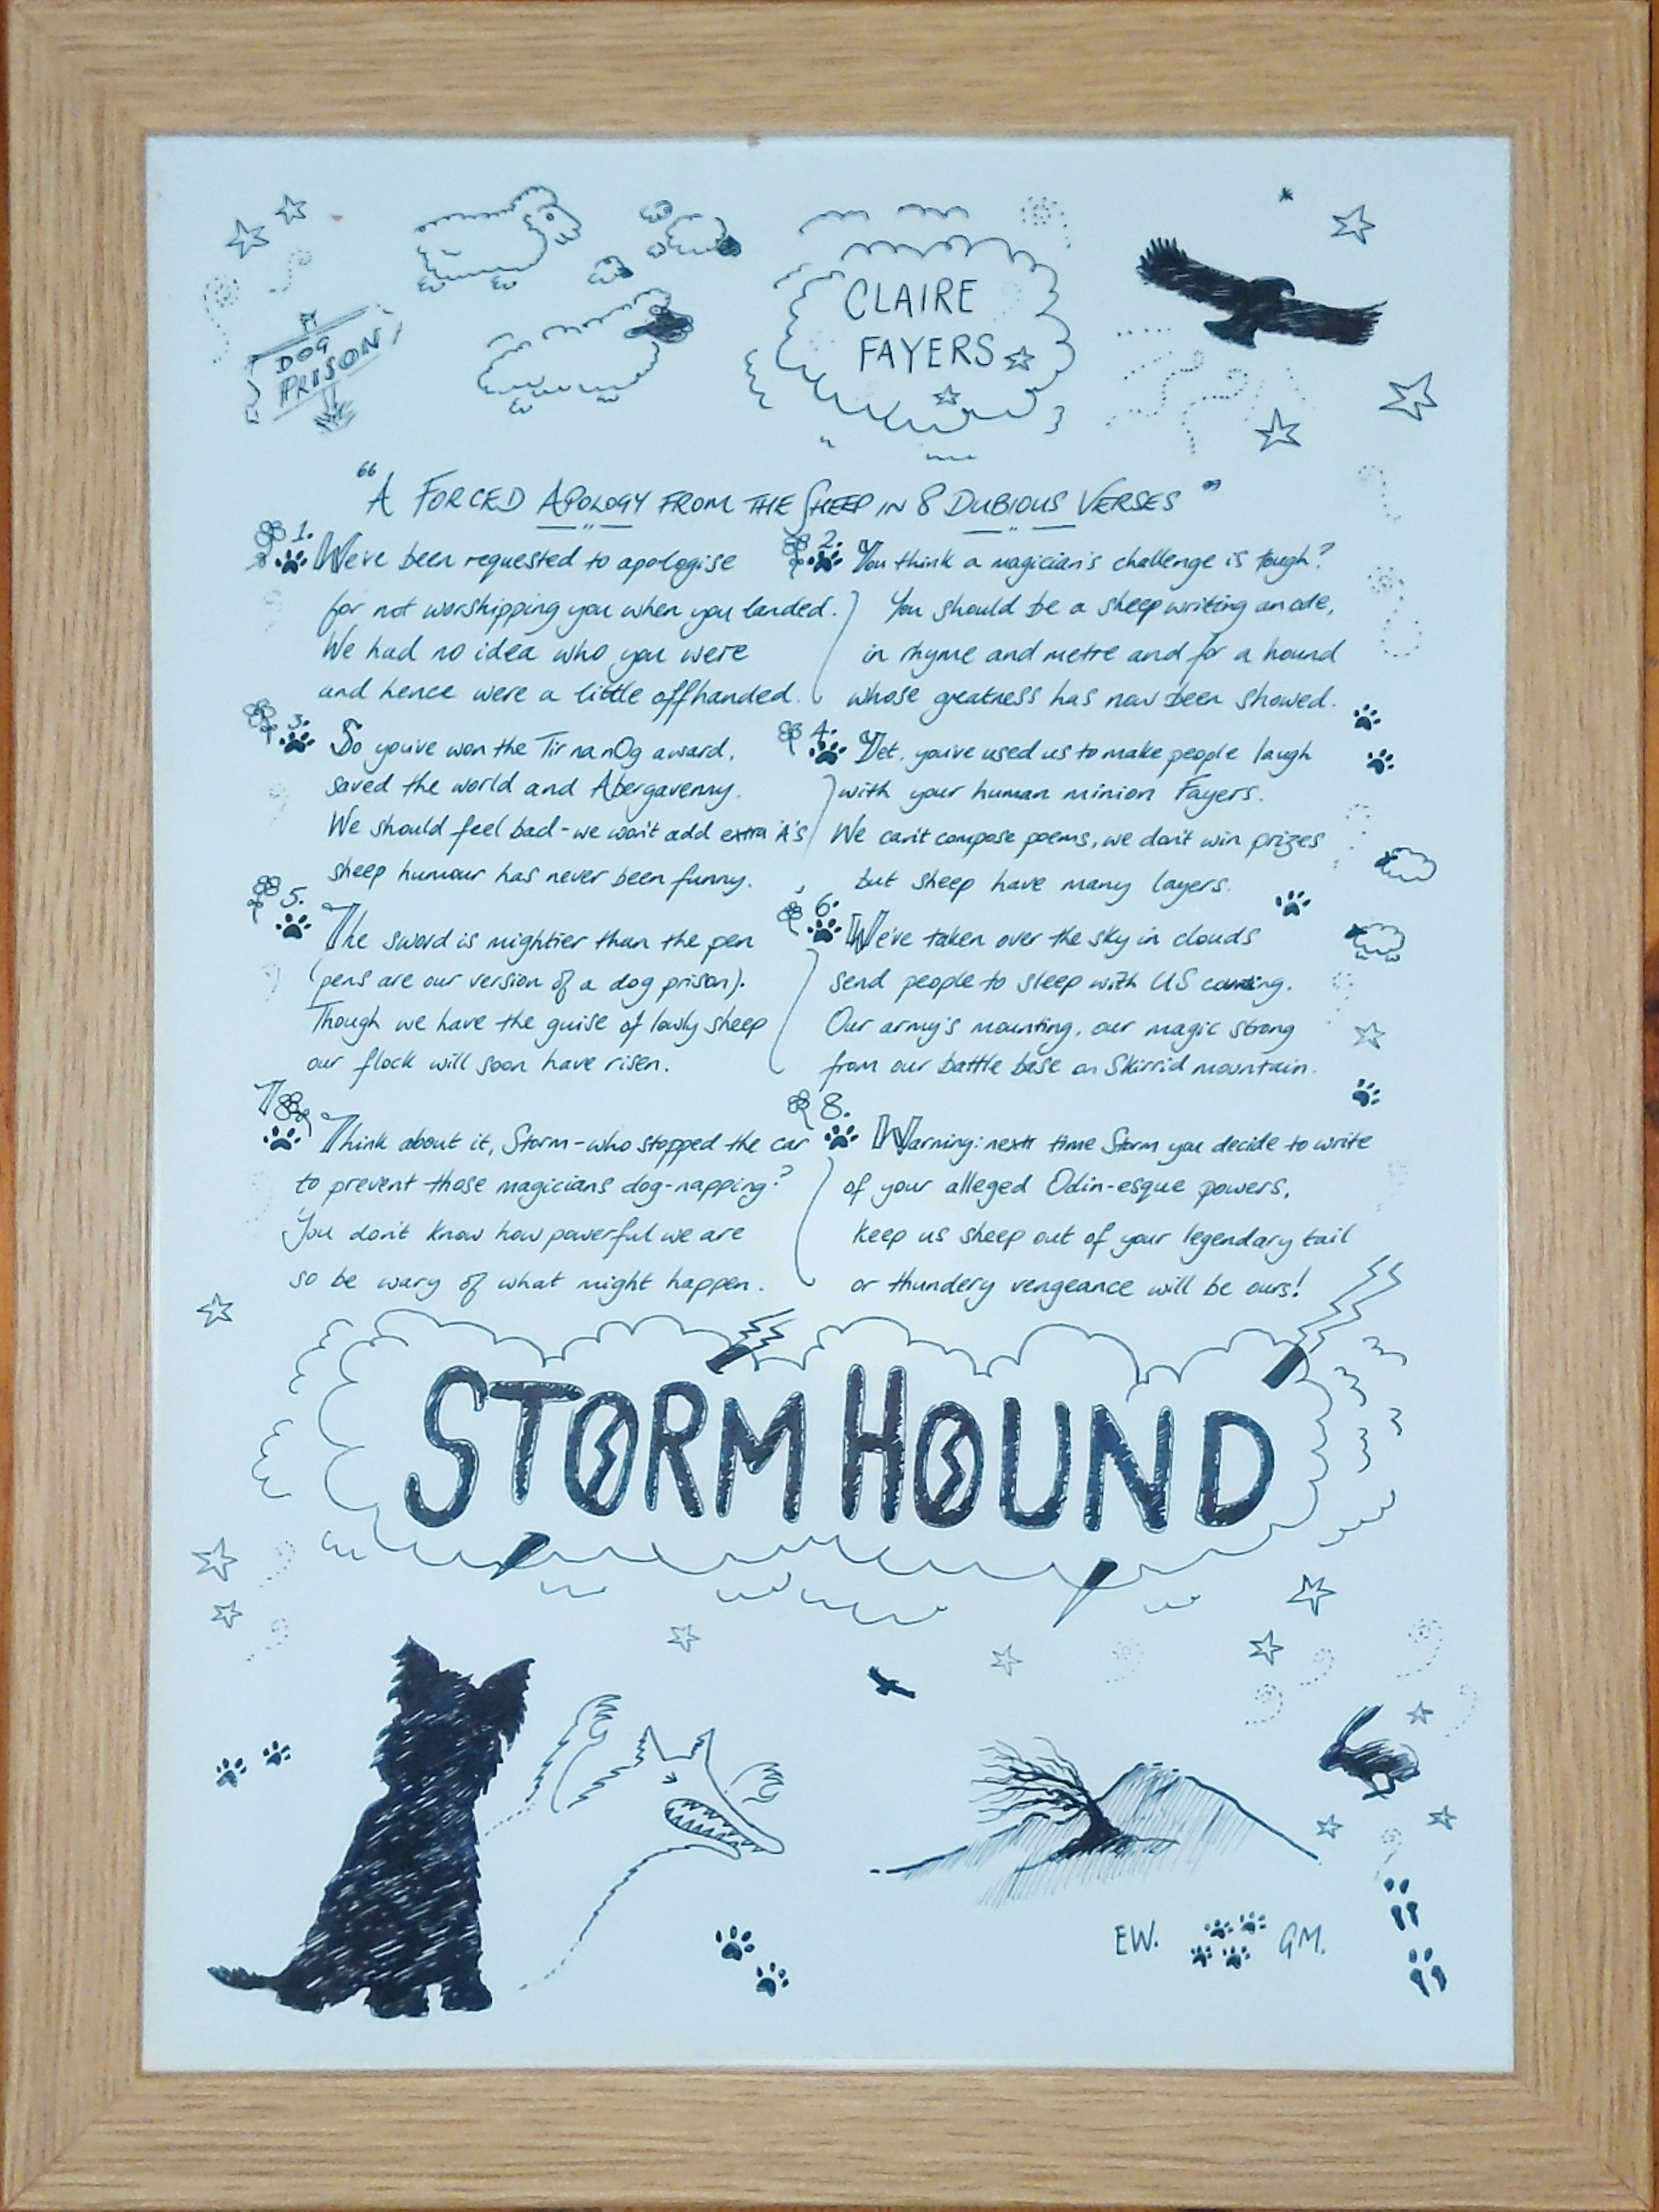 DOG
PRISON
CLAIRE
FAYERS
"A FORCED APOLOGY FROM THE SHEEP IN 8 DUBIOUS VERSES"
1. We've been requested to apologise
for not worshipping you when you landed.
We had no idea who you were
and hence were a little offhanded.
2. You think a magician's challenge is tough?
You should be a sheep writing an ode,
in rhyme and metre and for a hound
whose greatness has now been showed.
3. So you've won the Tir nanOg award,
saved the world and Abergavenny.
We should feel bad - we won't add extra 'A's
sheep humour has never been funny.
4. Yet, you've used us to make people laugh
with your human minion Fayers.
We can't compose poems, we don't win prizes
but sheep have many layers.
5. The sword is mightier than the pen
(pens are our version of a dog prison).
Though we have the guise of lowly sheep
our flock will soon have risen.
6. We've taken over the sky in clouds
send people to sleep with US counting.
Our army's mounting, our magic strong
from our battle base on Skirrid mountain.
7. Think about it, Storm - who stopped the car
to prevent those magicians dog-napping?
You don't know how powerful we are
so be wary of what might happen.
8. Warning: next time Storm you decide to write
of your alleged Odin-esque powers,
keep us sheep out of your legendary tail
or thundery vengeance will be ours!
STORM HOUND
EW. GM.